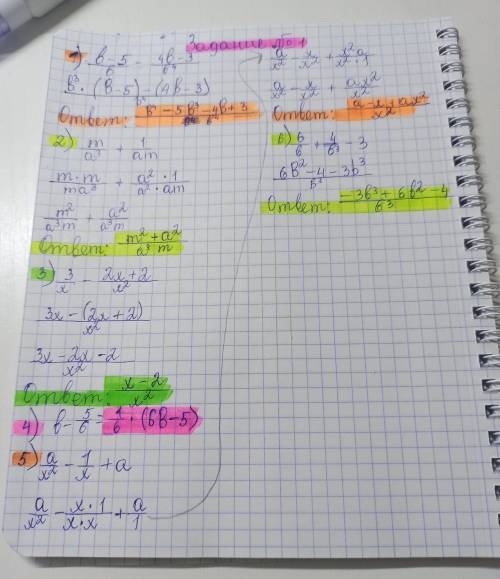 Задание №1
1) (b-5)/b - (4b-3)/b⁴
b³ · (b-5) - (4b-3) / b⁴
Ответ: (b⁴ - 5b³ - 4b + 3)/b⁴
2) m/a³ + 1/am
m·m/ma³ + a²·1/a²·am
m²/a³m + a²/a³m
Ответ: (m² + a²)/a³m
3) 3/x - (2x+2)/x²
3x - (2x+2) / x²
3x - 2x - 2 / x²
Ответ: (x-2)/x²
4) b - 5/6 = 1/6 · (6b-5)
5) a/x² - 1/x + a
a/x² - x·1/x·x + a/1
a/x² - x/x² + x²·a/x²·1
a/x² - x/x² + ax²/x²
Ответ: (a - x + ax²)/x²
6) 6/b + 4/b³ - 3
6b² - 4 - 3b³ / b³
Ответ: (-3b³ + 6b² - 4)/b³